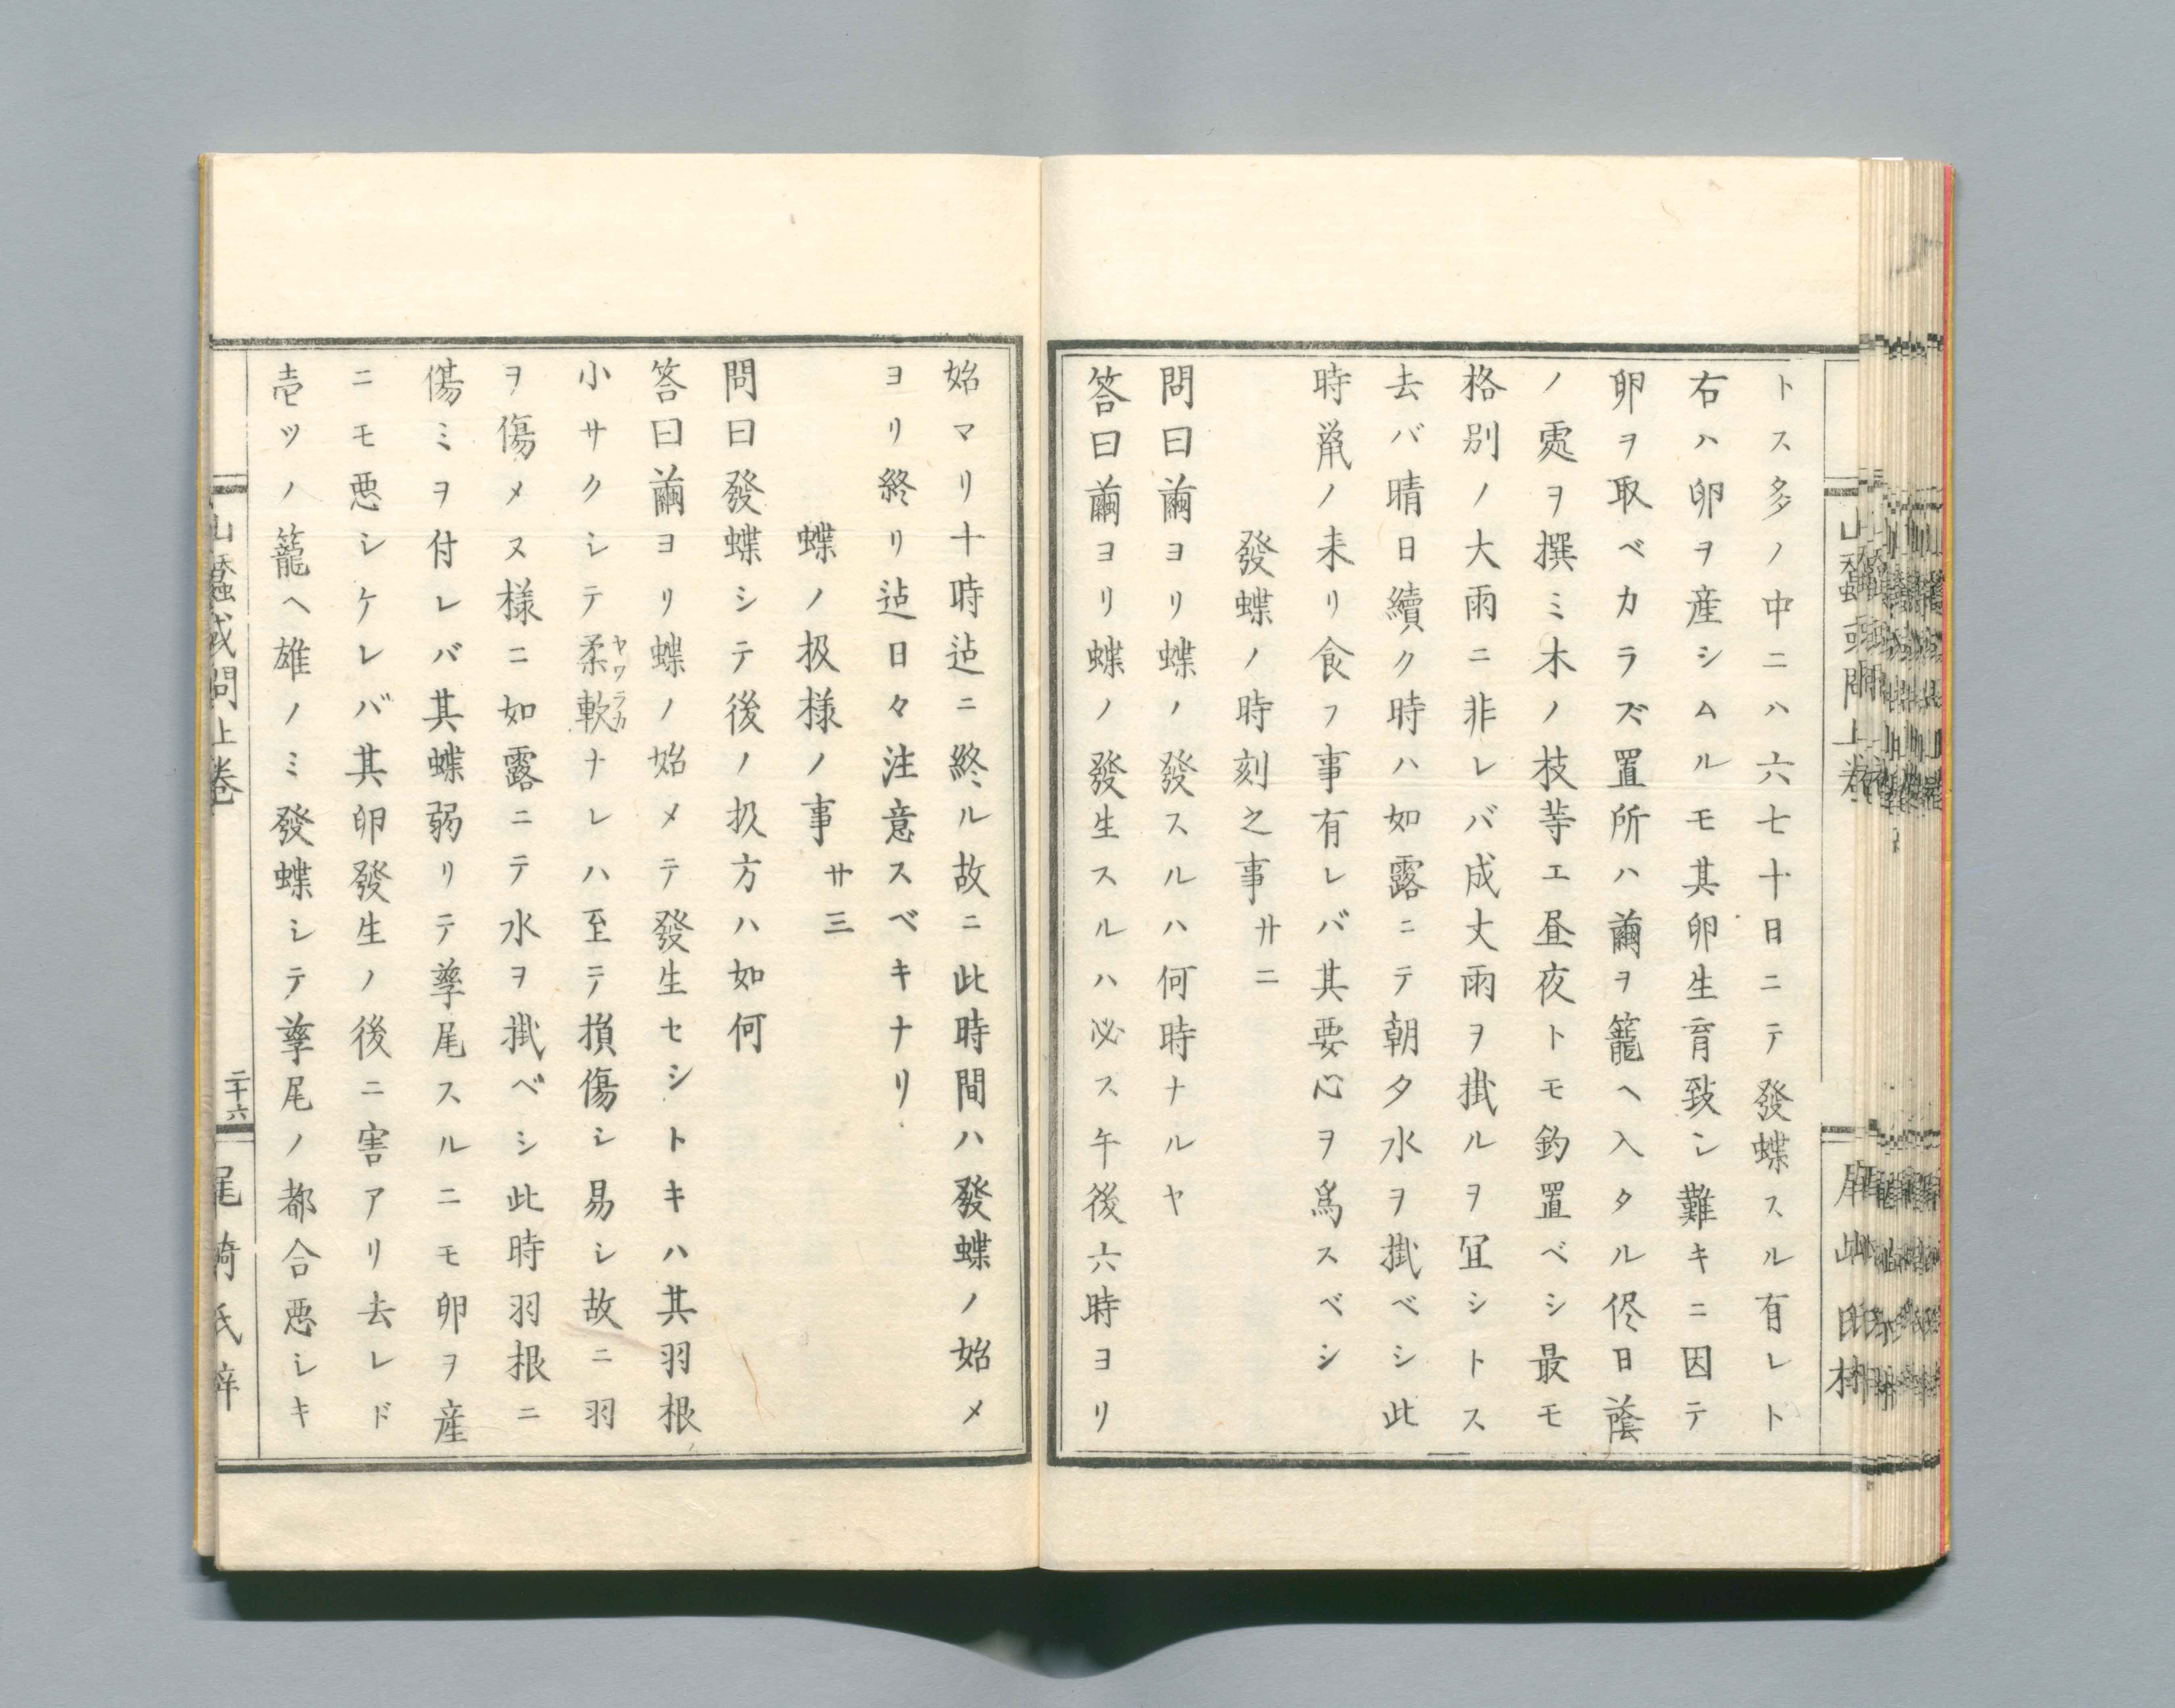 トス多ノ中ニハ六七十日ニテ發蝶スル有レト
右ハ卵ヲ産シムルモ其卵生育致シ難キニ因テ
卵ヲ取ベカラズ置所ハ繭ヲ籠ヘ入タル侭日蔭
ノ處ヲ撰ミ木ノ枝等エ昼夜トモ釣置ベシ最モ
格別ノ大雨ニ非レバ成丈雨ヲ掛ルヲ冝シトス
去バ晴日續ク時ハ如露ニテ朝夕水ヲ掛ベシ此
時鼠ノ来リ食フ事有レバ其要心ヲ爲スベシ
發蝶ノ時刻之事 廿二
問曰繭ヨリ蝶ノ發スルハ何時ナルヤ
答曰繭ヨリ蝶ノ發生スルハ必ス午後六時ヨリ
始マリ十時迠ニ終ル故ニ此時間ハ發蝶ノ始メ
ヨリ終リ迠日々注意スベキナリ
蝶ノ扱様ノ事 廿三
問曰發蝶シテ後ノ扱方ハ如何
答曰繭ヨリ蝶ノ始メテ發生セシトキハ其羽根
小サクシテ柔軟ナレハ至テ損傷シ易シ故ニ羽
ヤワラカ
ヲ傷メヌ様ニ如露ニテ水ヲ掛ベシ此時羽根ニ
傷ミヲ付レバ其蝶弱リテ孳尾スルニモ卵ヲ産
ニモ悪シケレバ其卵發生ノ後ニ害アリ去レド
壱ツノ籠ヘ雄ノミ發蝶シテ孳尾ノ都合悪シキ
山蠶或問上巻
二十六
尾﨑氏梓